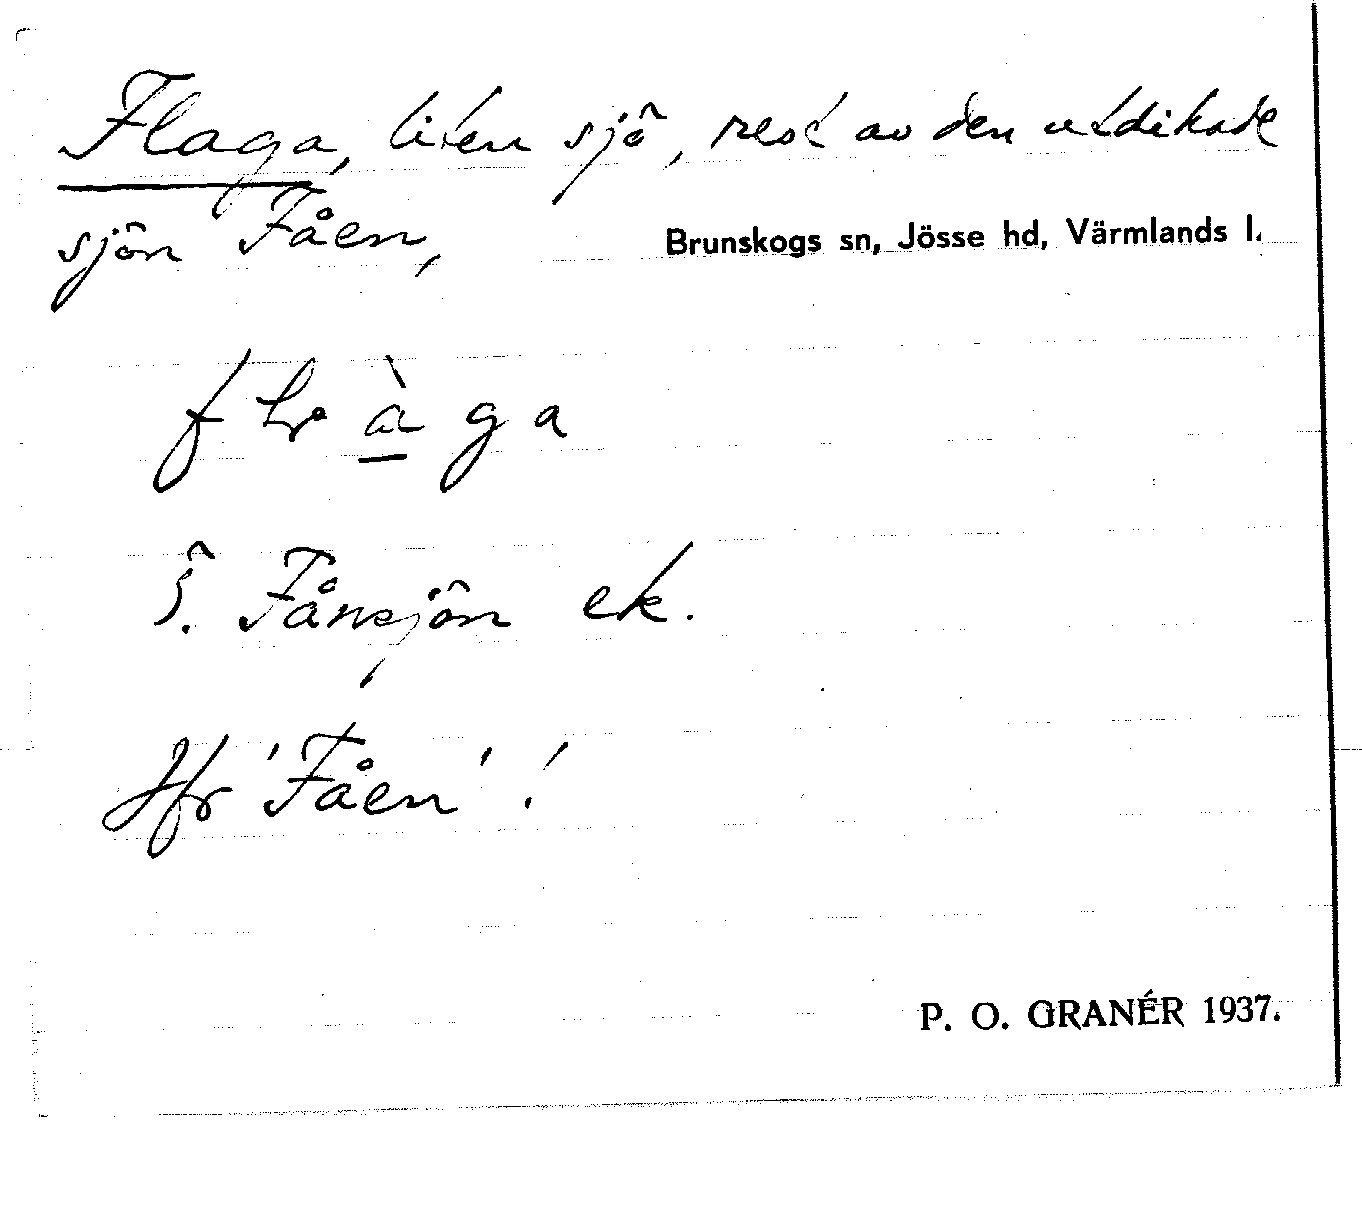 Flaga, liten sjö, rest av den utdikade
sjön Fåen,
Brunskogs sn, Jösse hd, Värmlands l.
f l à g a
Ö. Fånsjön ek.
Jfr 'Fåen'!
P. O. GRANÉR 1937.